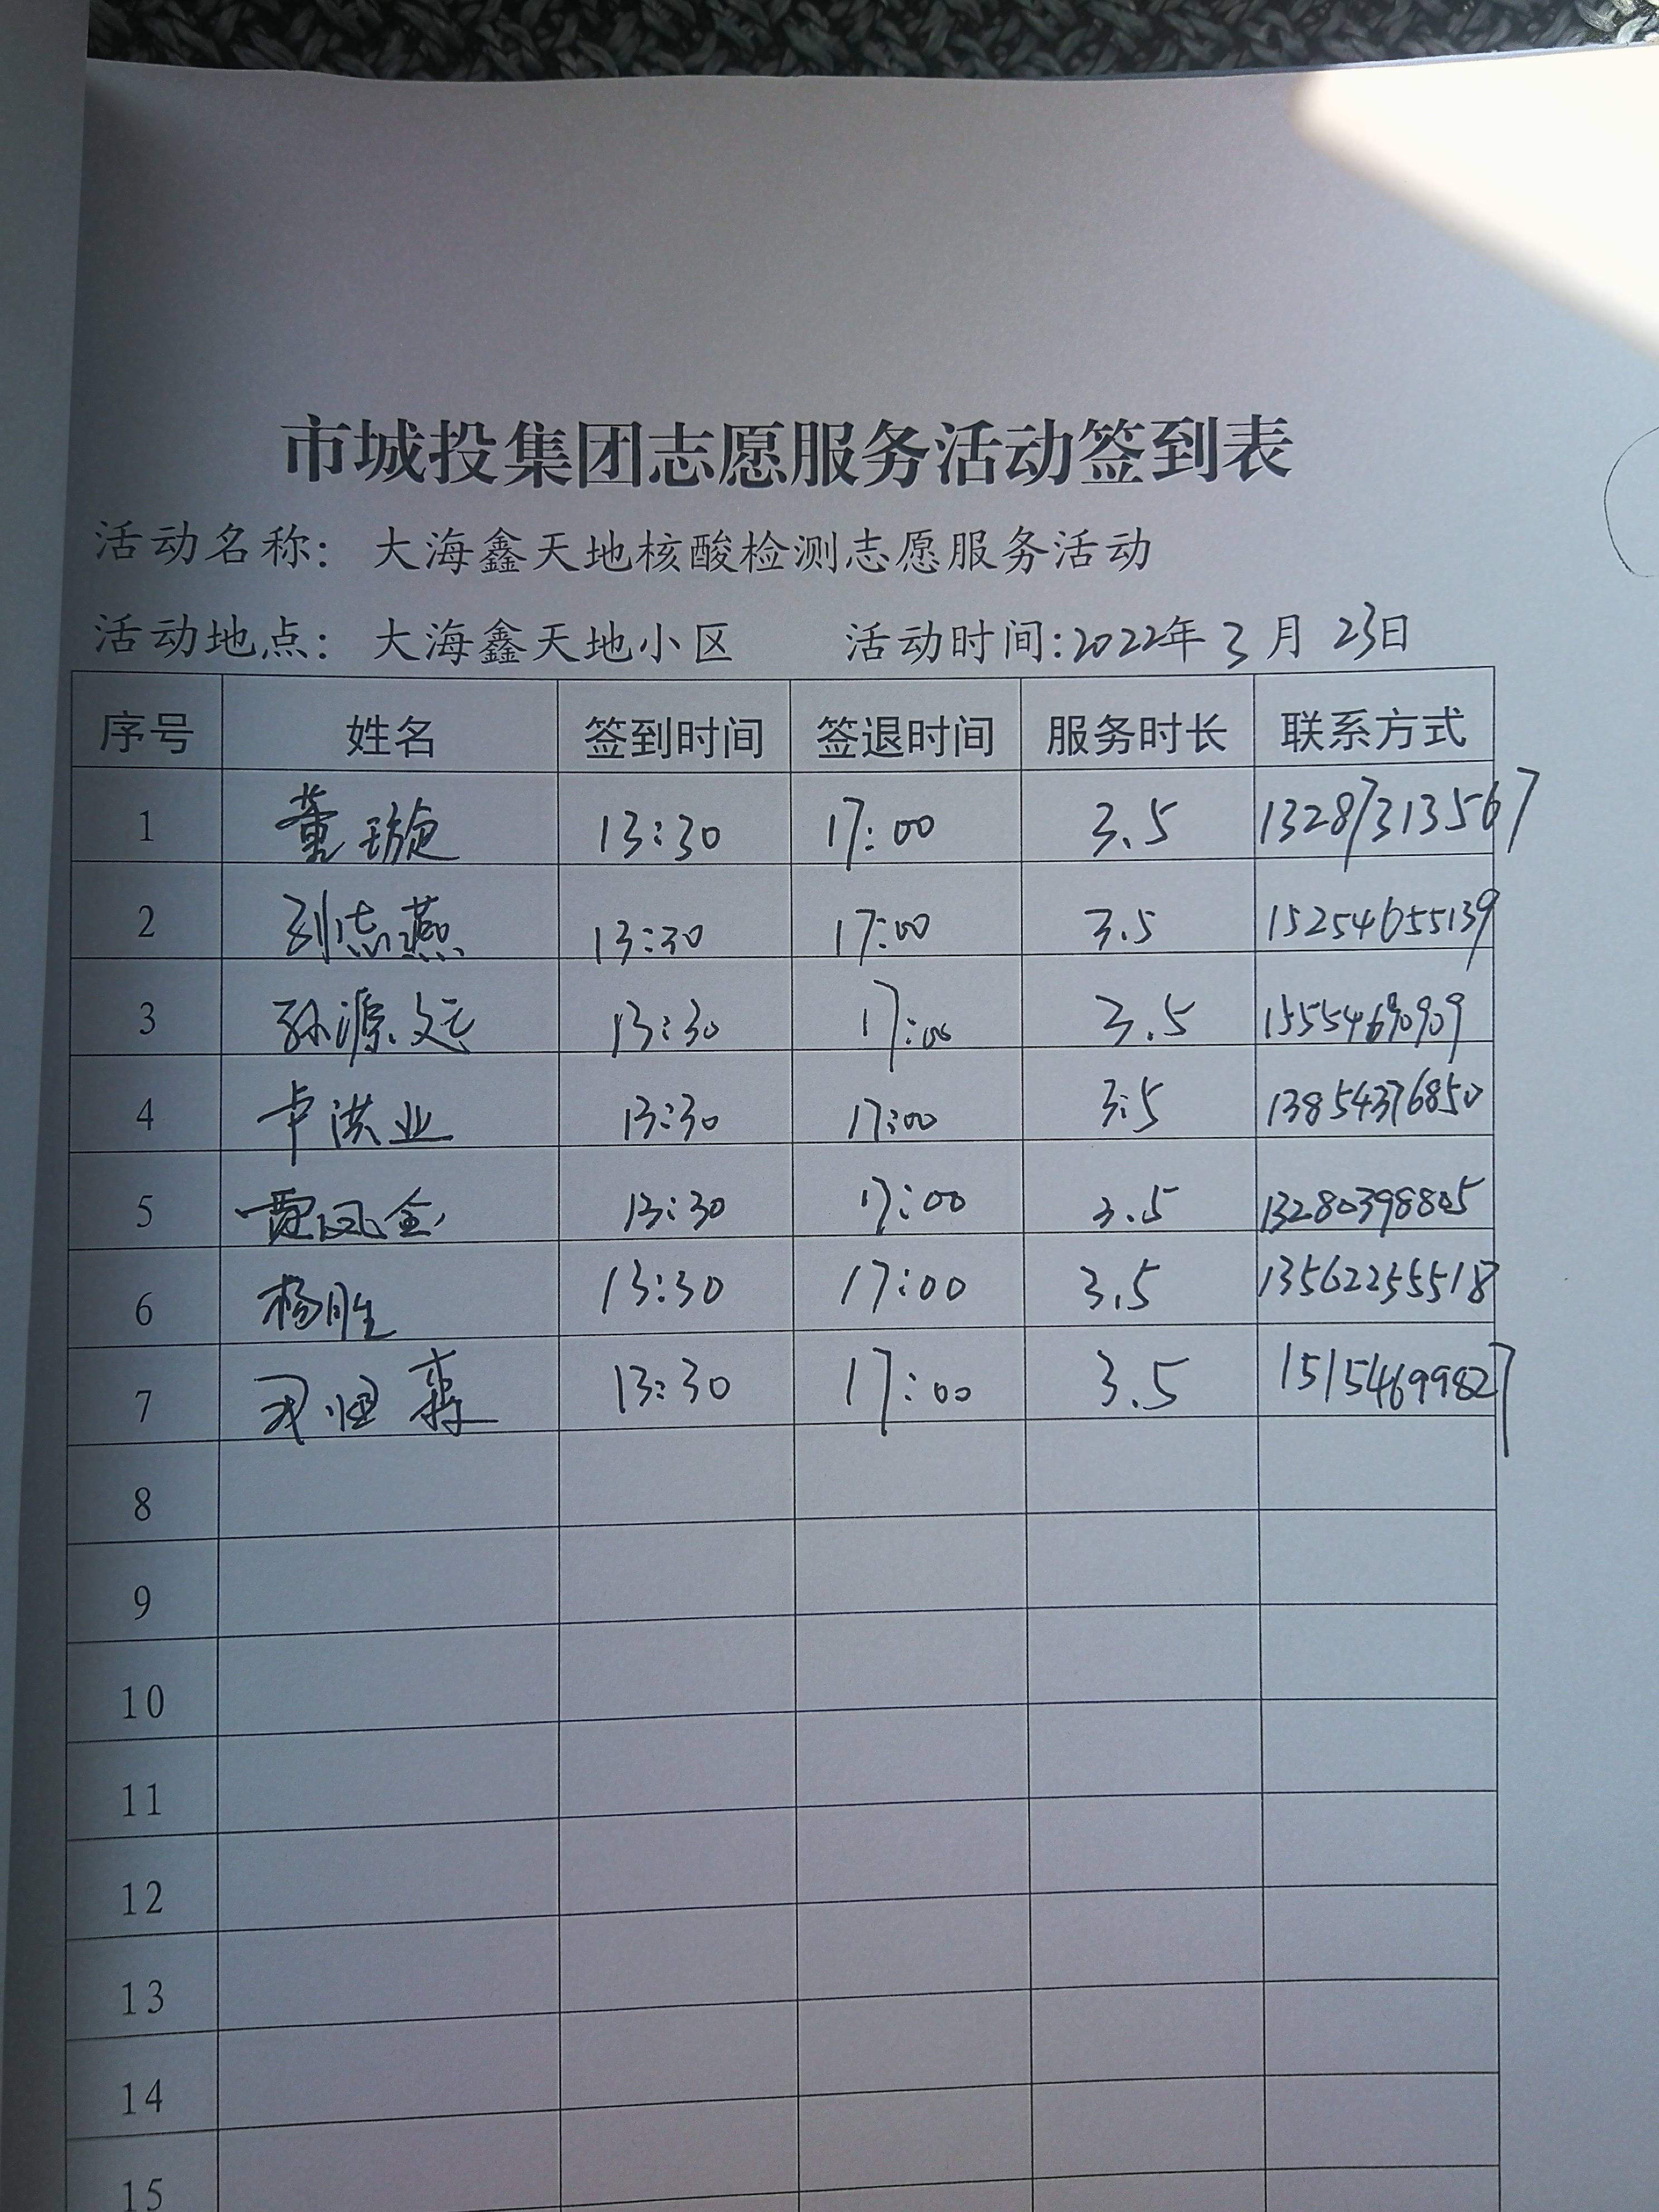 市城投集团志愿服务活动签到表
活动名称：大海鑫天地核酸检测志愿服务活动
活动地点：大海鑫天地小区 活动时间:2022年3月23日
序号 姓名 签到时间 签退时间 服务时长 联系方式
1 董璇 13:30 17:00 3.5 13287313567
2 刘志燕 13:30 17:00 3.5 15254655139
3 孙源远 13:30 17:00 3.5 15554690909
4 卢洪业 13:30 17:00 3.5 13854376850
5 贾凤金 13:30 17:00 3.5 13280398805
6 杨胜 13:30 17:00 3.5 13562255518
7 13:30 17:00 3.5 15154699827
8
9
10
11
12
13
14
15